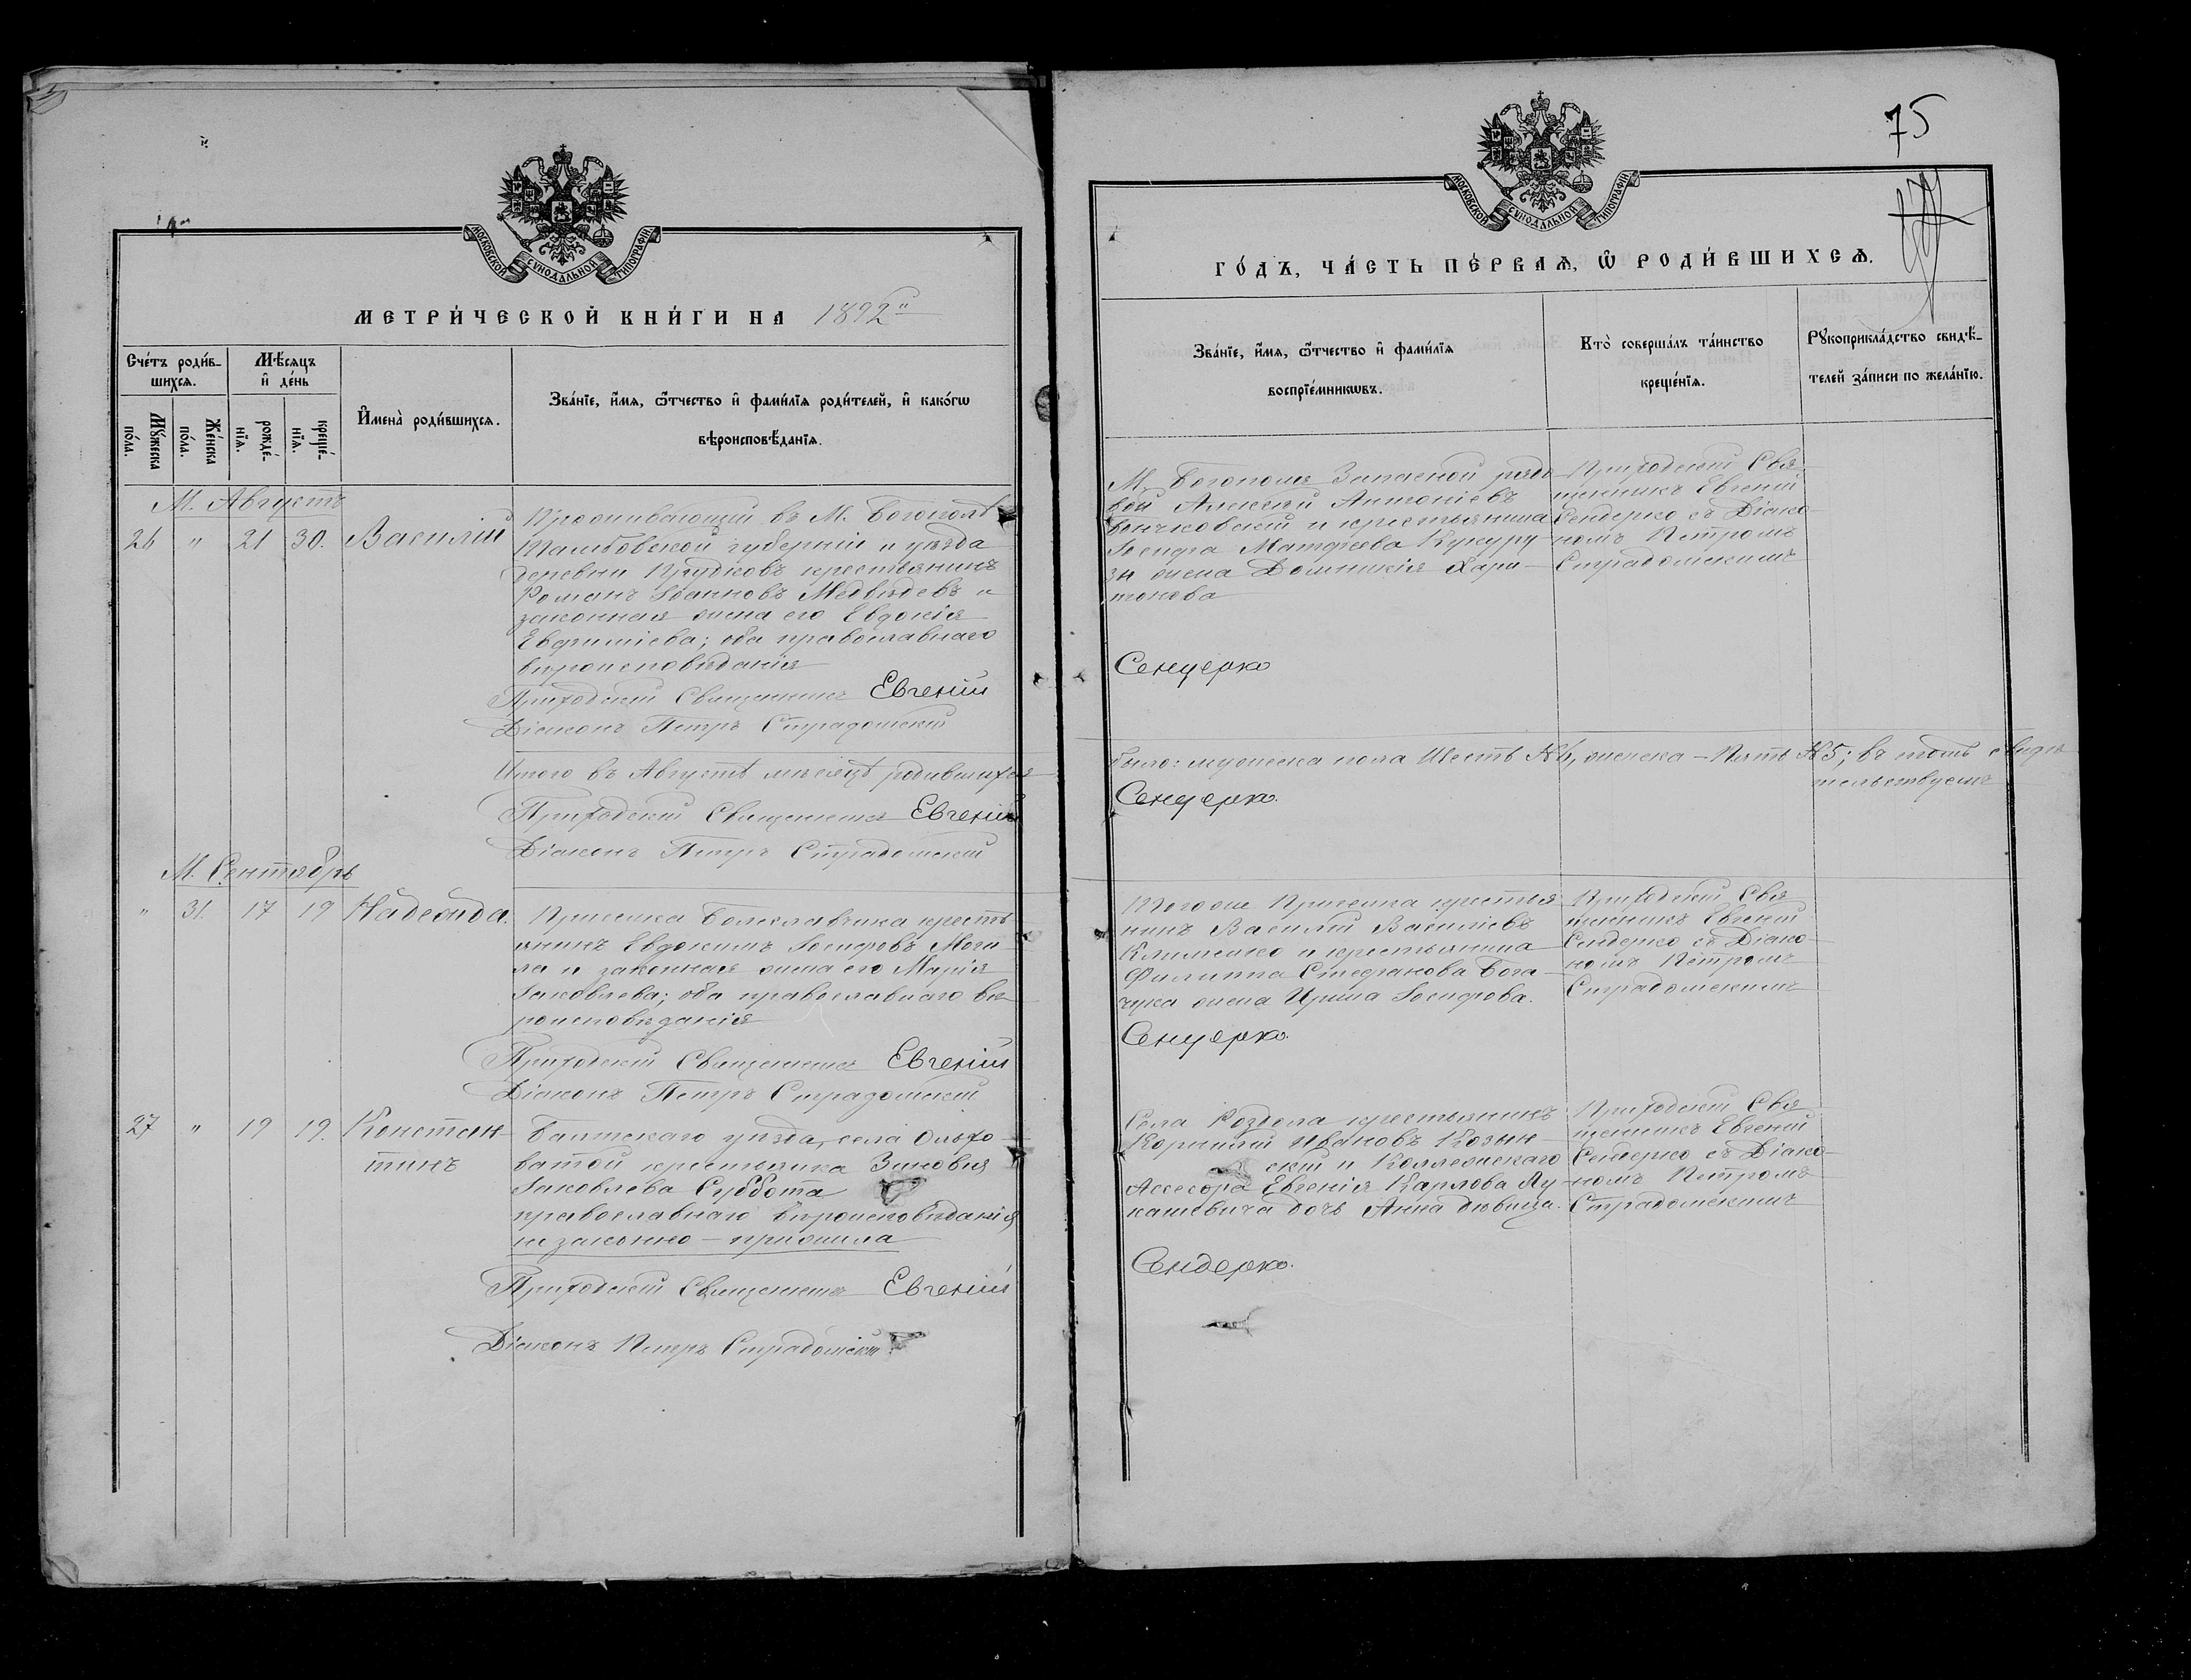 МОСКОВСКОЙ СѴНОДАЛЬНОЙ ТИПОГРАФІИ
МЕТРИ́ЧЕСКОЙ КНИ́ГИ НА 1892й
Сче́тъ роди́в-
шихсѧ.
Мѣ́сѧцъ
и҆ де́нь
Мꙋ́жеска по́ла.
Же́нска по́ла.
рожде́-
нїѧ.
креще́-
нїѧ.
И҆мена̀ роди́вшихсѧ.
Зва́нїе, и҆́мѧ, ѻ҆́тчество и҆ фами́лїѧ роди́телей, и҆ како́гѡ
вѣроисповѣ́данїѧ.
М. Августъ
26 " 21 30. Василій
Проживающій въ М. Богополѣ
Тамбовской губерніи и уѣзда
деревни Прудковъ крестьянинъ
Романъ Ивановъ Медвѣдевъ и
законная жена его Евдокія
Евфиміева; оба православнаго
вѣроисповѣданія
Приходскій Священникъ Евгеній
Діаконъ Петръ Страдомскій
Итого въ Августѣ мѣсяцѣ родившихся
Приходскій Священникъ Евгеній
Діаконъ Петръ Страдомскій
М. Сентябрь
" 31. 17 19 Надежда.
Присѣлка Болеславчика кресть
янинъ Евдокимъ Іосифовъ Моги
ла и законная жена его Марія
Іаковлева; оба православнаго вѣ
роисповѣданія
Приходскій Священникъ Евгеній
Діаконъ Петръ Страдомскій
27 " 19 19. Констан
тинъ
Балтскаго уѣзда, села Ольхо-
ватой крестьянка Зиновия
Іаковлева Суббота
православнаго вѣроисповѣданія
незаконно - прижила
Приходскій Священникъ Евгеній
Діаконъ Петръ Страдомскій
75
МОСКОВСКОЙ СѴНОДАЛЬНОЙ ТИПОГРАФІИ
ГО́ДЪ, ЧА́СТЬ ПЕ́РВАѦ, Ѽ РОДИ́ВШИХСѦ.
Зва́нїе, и҆́мѧ, ѻ҆́тчество и҆ фами́лїѧ
воспрїе́мникѡвъ.
Кто̀ соверша́лъ та́инство
креще́нїѧ.
Рꙋкоприкла́дство свидѣ́-
телей за́писи по жела́нїю.
М. Богополя Запасной рядо
вой Алексѣй Антоніевъ
и крестьянина
Іосифа Матфеева Кукуру
зы жена Домникія Хари-
тонова
Сендерко
Приходскій Свя
щенникъ Евгеній
Сендерко съ Діако
номъ Петромъ
Страдомскимъ
было: мужеска пола Шесть № 6, женска - Пять № 5; въ томъ свидѣ
тельствуемъ
Сендерко.
Тогоже Присѣлка крестья
нинъ Василій Василіевъ
Клименко и крестьянина
Филиппа Стефанова Бога-
чука жена Ирина Іосифова.
Сендерко.
Приходскій Свя
щенникъ Евгеній
Сендерко съ Діако-
номъ Петромъ
Страдомскимъ
Села Роздола крестьянинъ
Корнилій Ивановъ Козын-
скій и Коллежскаго
Ассесора Евгенія Карлова Лу-
кашевича дочь Анна дѣвица.
Сендерко.
Приходскій Свя
щенникъ Евгеній
Сендерко съ Діако-
номъ Петромъ
Страдомскимъ